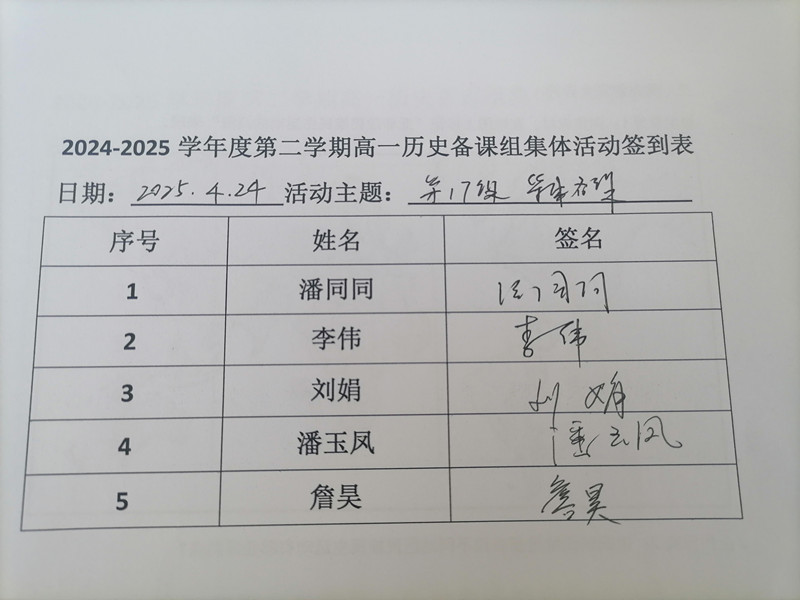 2024-2025 学年度第二学期高一历史备课组集体活动签到表
日期: 2025.4.24 活动主题: 第17课 集体备课
序号 姓名 签名
1 潘同同 潘同同
2 李伟 李伟
3 刘娟 刘娟
4 潘玉凤 潘玉凤
5 詹昊 詹昊